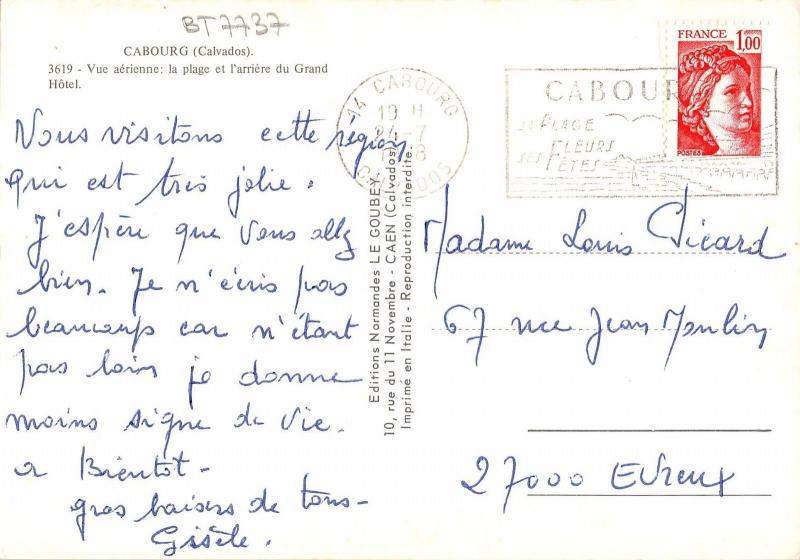 BT7737
CABOURG (Calvados).
3619 - Vue aérienne: la plage et l'arrière du Grand
Hôtel.
Nous visitons cette région
qui est très jolie.
J'espère que vous allez
bien. Je n'écris pas
beaucoup car n'étant
pas loin je donne
moins signe de vie.
a Bientôt-
gros baisers de tous-
Gisèle.
Editions Normandes LE GOUBEY
10, rue du 11 Novembre - CAEN (Calvados)
Imprimé en Italie - Reproduction interdite
14 CABOURG
19 H
24-7
CALVADOS
CABOURG
SA PLAGE
SES FLEURS
SES FÊTES
FRANCE 1,00
POSTES
Madame Louis Picard
67 rue Jean Moulin
27000 EVreux